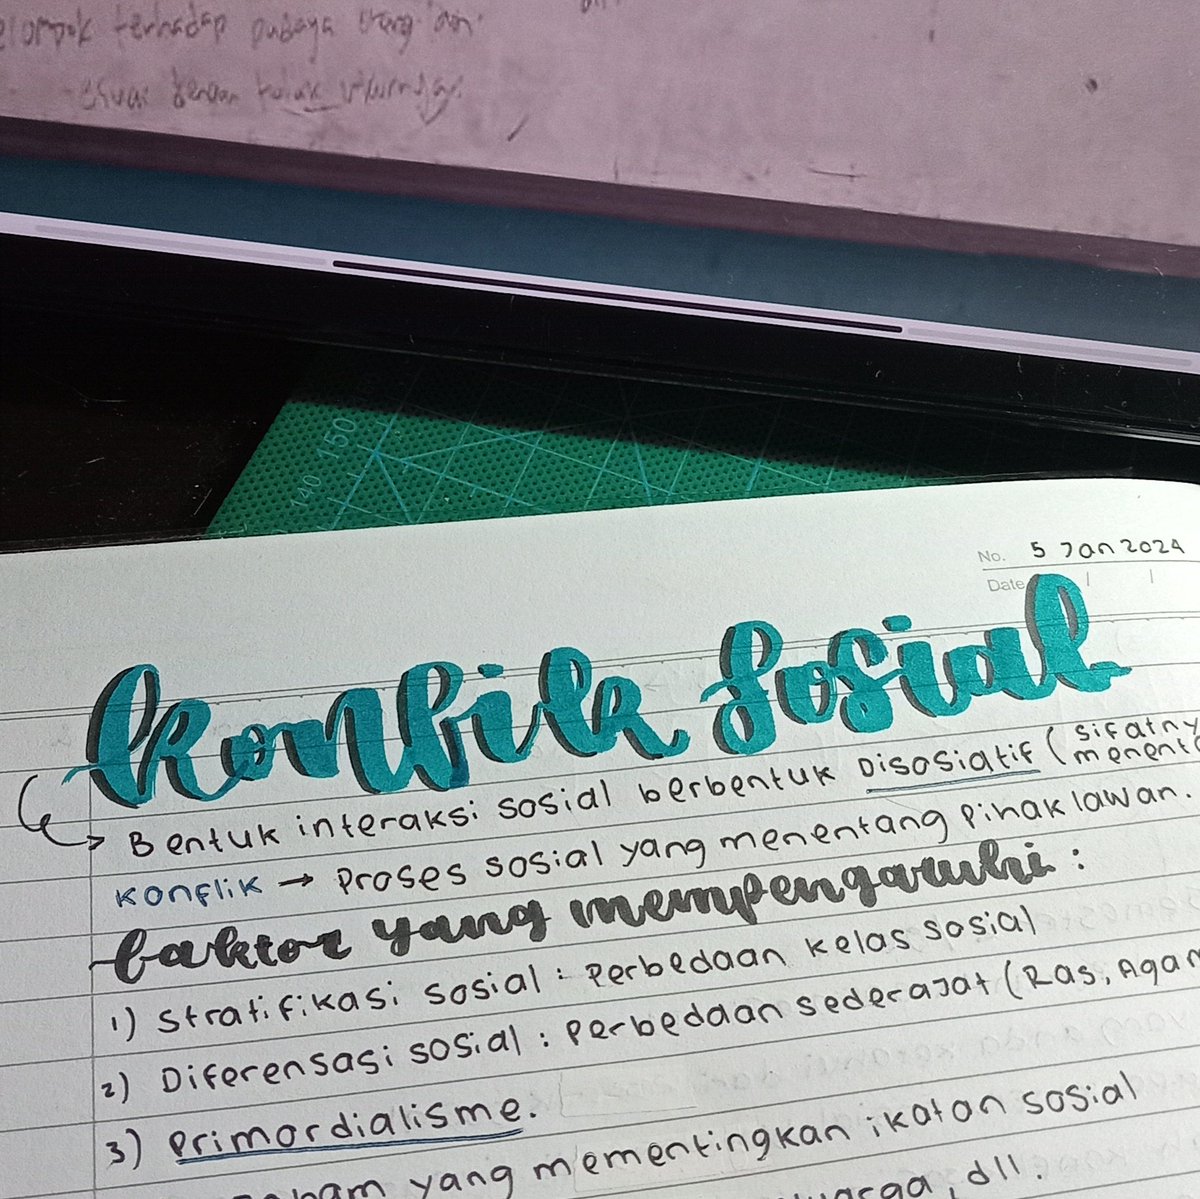 terhadap
dengan
150
140
No. 5 Jan 2024
Date / /
Konflik Sosial
Bentuk interaksi sosial berbentuk Disosiatif ( sifatny
menent
Konflik → Proses sosial yang menentang pihak lawan.
faktor yang mempengaruhi :
1) Stratifikasi sosial : Perbedaan kelas sosial
2) Diferensasi sosial : Perbedaan sederajat (Ras, Agam
3) Primordialisme.
yang mementingkan ikatan sosial
dll.